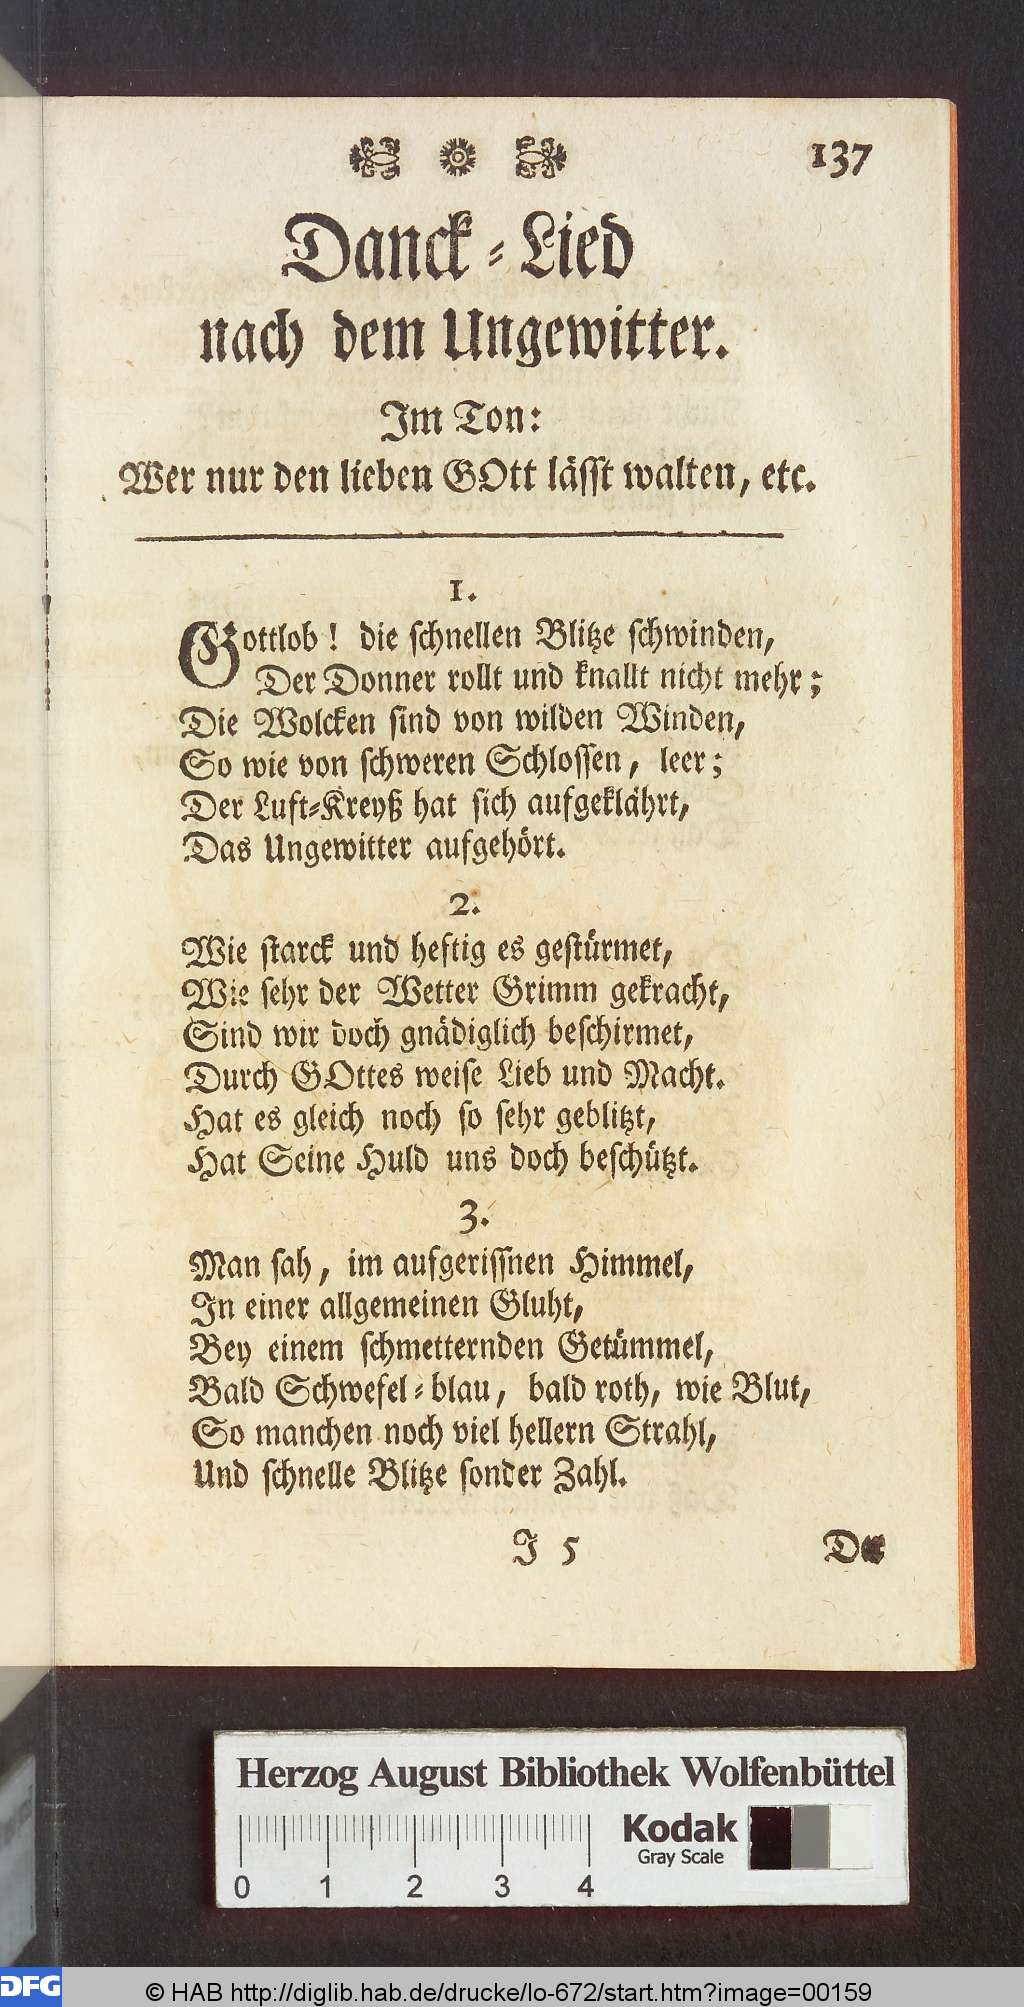 137
Danck-Lied
nach dem Ungewitter.
Im Ton:
Wer nur den lieben GOtt lässt walten, etc.
1.
Gottlob! die schnellen Blitze schwinden,
Der Donner rollt und knallt nicht mehr;
Die Wolcken sind von wilden Winden,
So wie von schweren Schlossen, leer;
Der Luft-Kreyß hat sich aufgeklährt,
Das Ungewitter aufgehört.
2.
Wie starck und heftig es gestürmet,
Wie sehr der Wetter Grimm gekracht,
Sind wir doch gnädiglich beschirmet,
Durch GOttes weise Lieb und Macht.
Hat es gleich noch so sehr geblitzt,
Hat Seine Huld uns doch beschützt.
3.
Man sah, im aufgerissnen Himmel,
In einer allgemeinen Gluht,
Bey einem schmetternden Getümmel,
Bald Schwefel-blau, bald roth, wie Blut,
So manchen noch viel hellern Strahl,
Und schnelle Blitze sonder Zahl.
J 5
Herzog August Bibliothek Wolfenbüttel
Kodak
Gray Scale
0 1 2 3 4
DFG
© HAB http://diglib.hab.de/drucke/lo-672/start.htm?image=00159